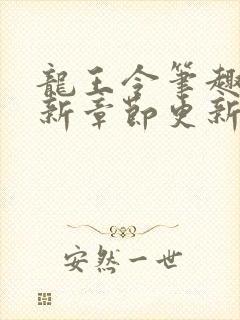 龍王令筆趣
新章節更新
安然一世